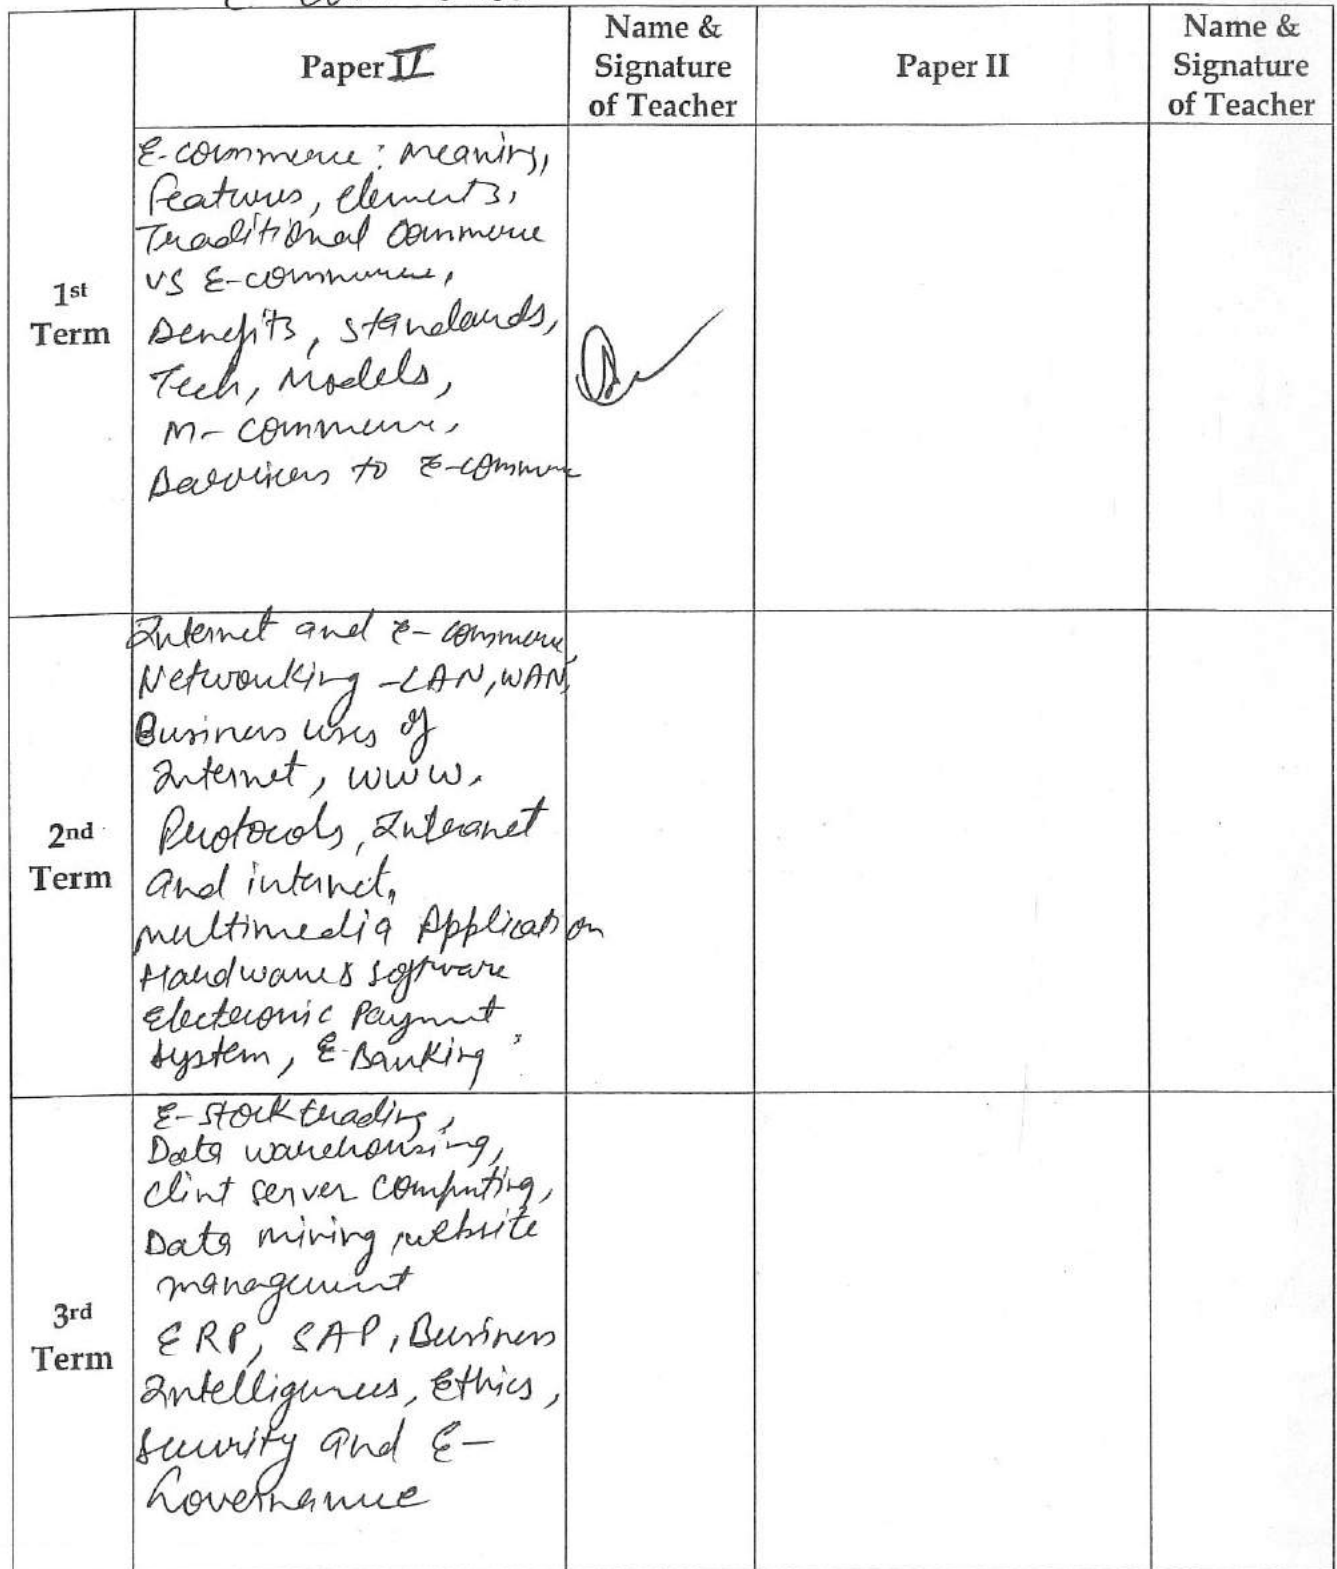 Paper IV
Name &
Signature
of Teacher
Paper II
Name &
Signature
of Teacher
1st
Term
E-commerce: meaning,
features, elements,
Traditional commerce
vs E-commerce,
Benefits, standards,
Tech, Models,
M-commerce,
Barriers to E-commerce
2nd
Term
Internet and E-commerce,
Networking - LAN, WAN,
Business uses of
Internet, WWW,
Protocols, Intranet
and internet,
multimedia Application
Hardware & software
Electronic Payment
system, E-Banking
3rd
Term
E-stock trading,
Data warehousing,
clint server computing,
Data mining, website
management
ERP, SAP, Business
Intelligences, Ethics,
security and E-
Governance